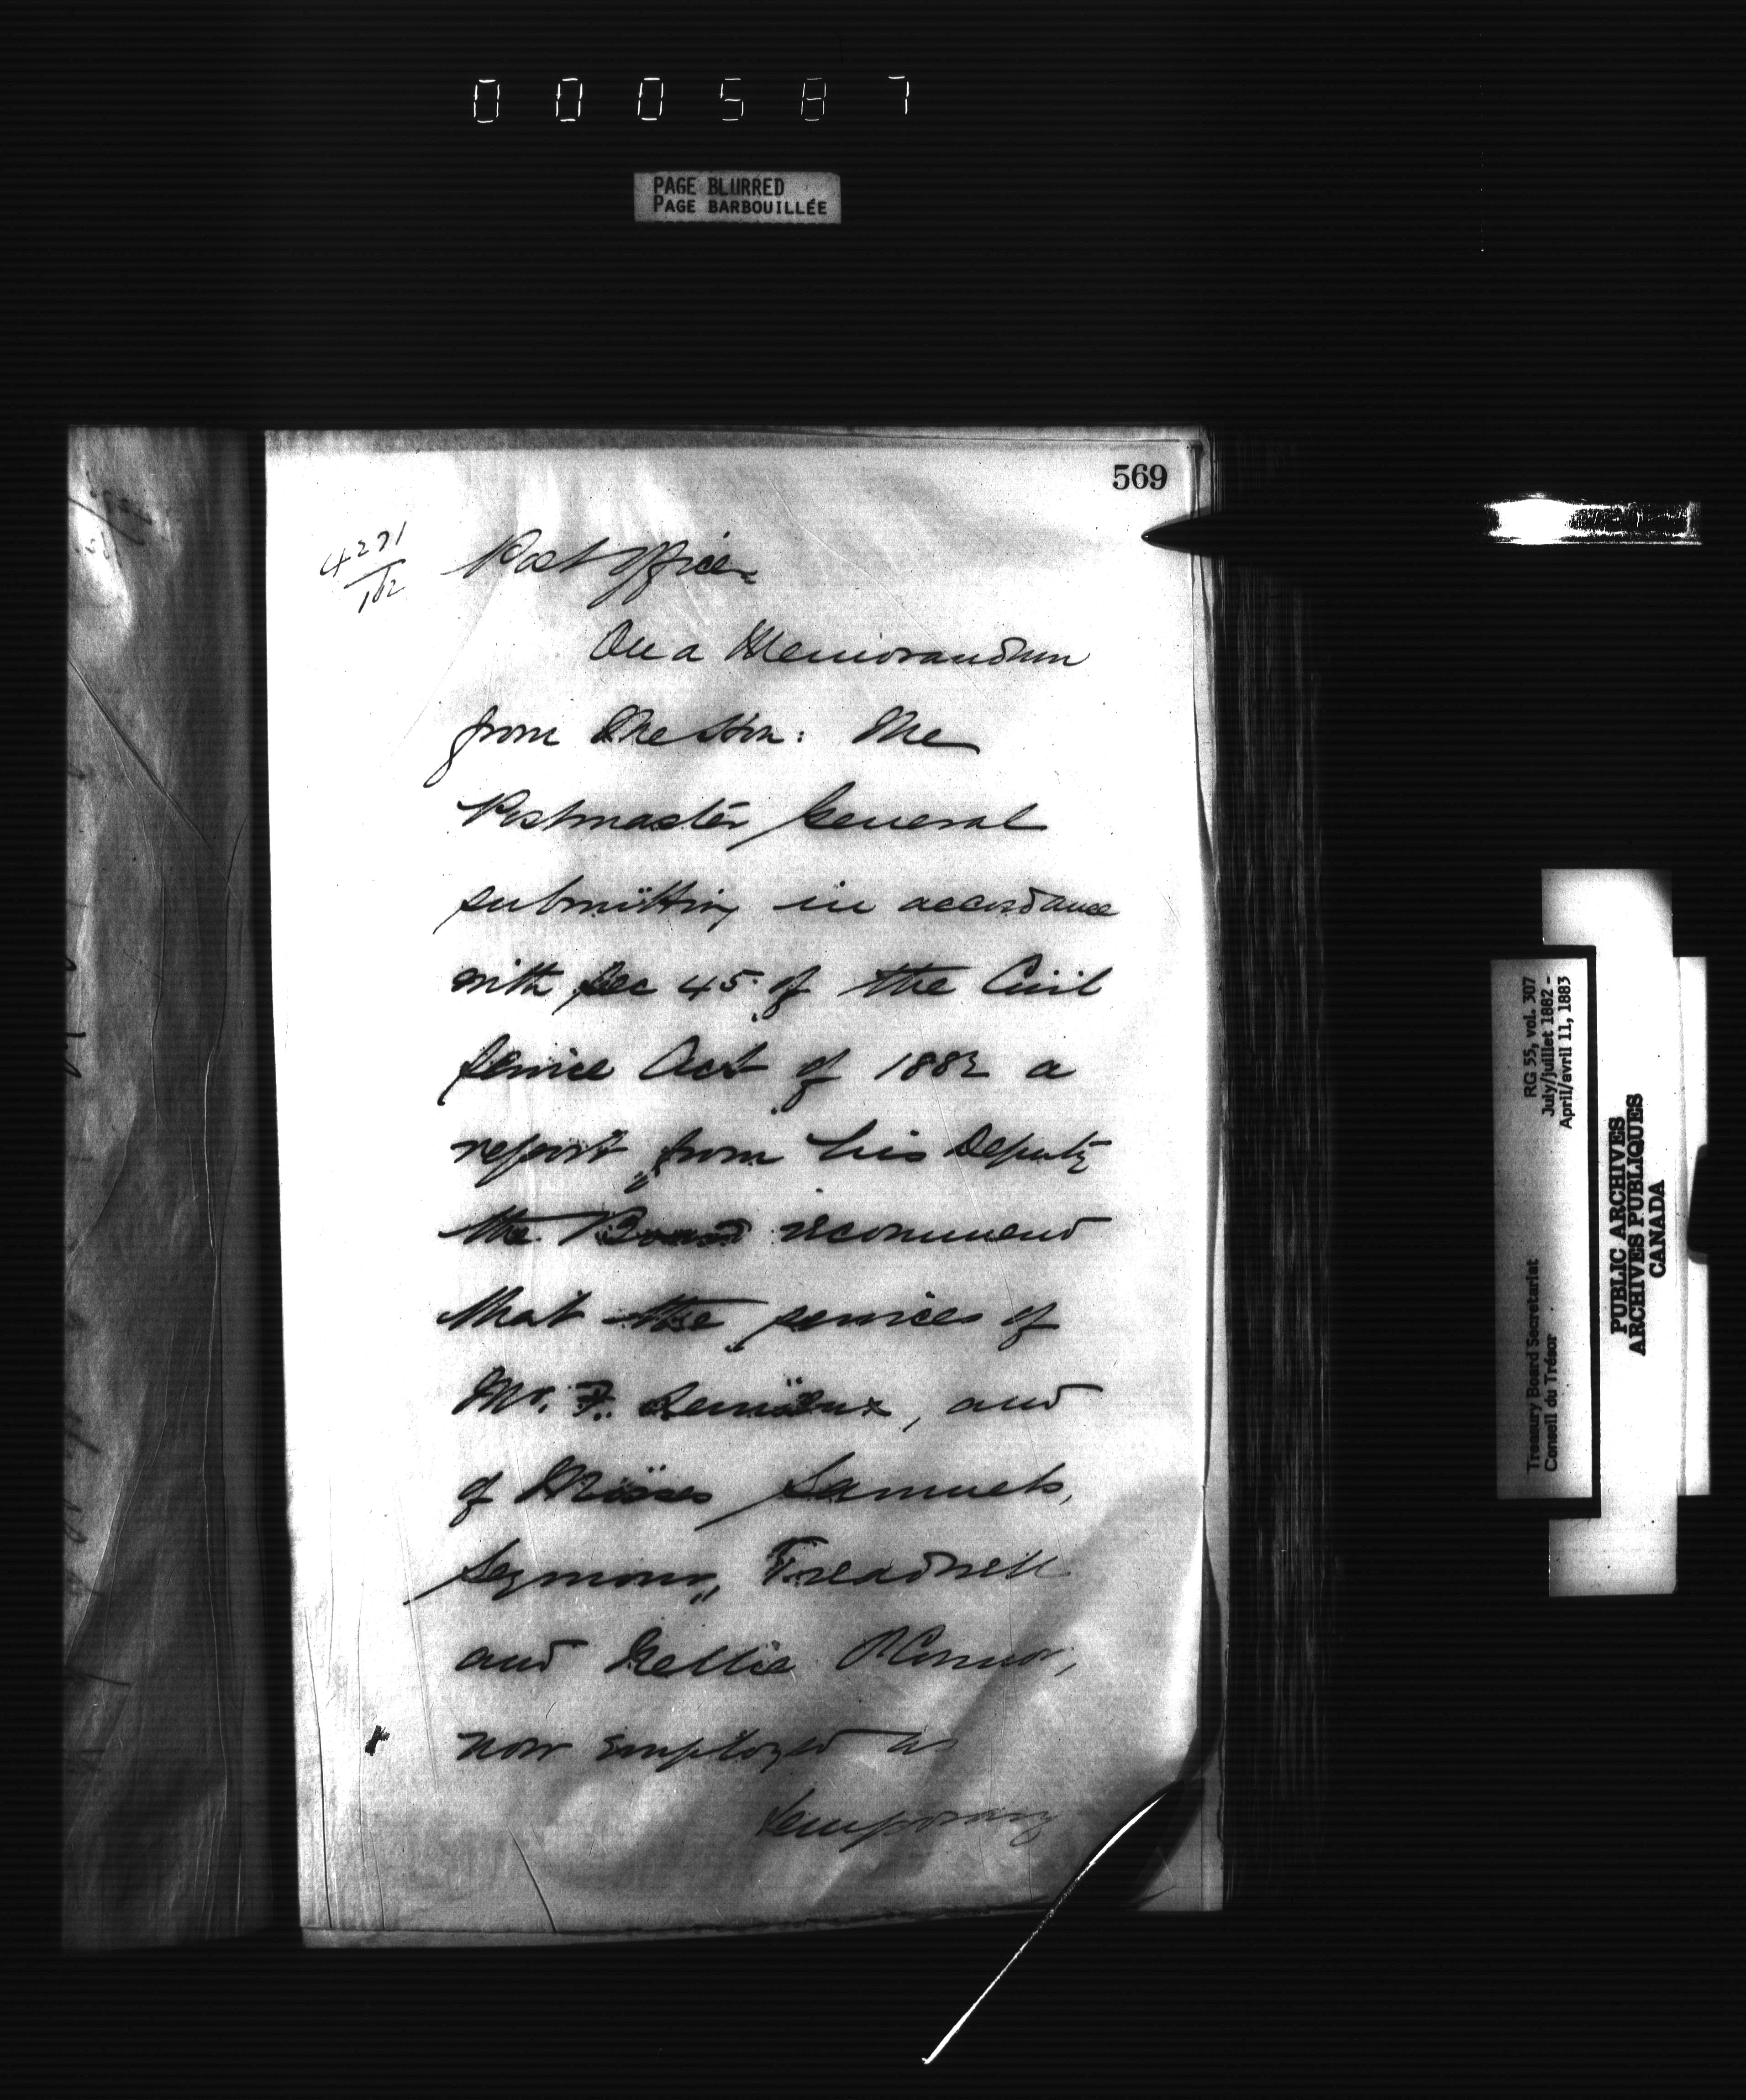 000587
PAGE BLURRED
PAGE BARBOUILLÉE
569
Post Office
On a Memorandum
from the Hon: the
Postmaster General
submitting in accordance
with Sec 45 of the Civil
Service Act of 1882 a
report from his Deputy
the Board recommend
that the services of
Mr. F. Lemieux, and
of Misses Samuels,
Seymour, Treadwell
and Nellie O'Connor,
now employed as
temporary
RG 55, vol. 307
July/juillet 1882 -
April/avril 11, 1883
Treasury Board Secretariat
Conseil du Trésor
PUBLIC ARCHIVES
ARCHIVES PUBLIQUES
CANADA